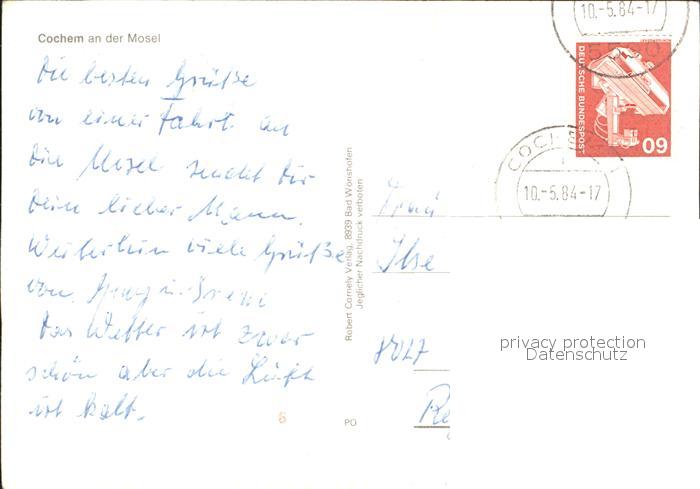 Cochem an der Mosel
Die besten Grüße
von einer Fahrt an
die Mosel sendet Dir
Dein lieber Mann.
Weiterhin viele Grüße
von
Das Wetter ist zwar
schön aber die Luft
ist kalt.
6
PO
Robert Cornely Verlag, 8939 Bad Wörishofen
Jeglicher Nachdruck verboten
Frau
Ilse
10.-5.84-17
5590
DEUTSCHE BUNDESPOST
60
COCH
10.-5.84-17
privacy protection
Datenschutz